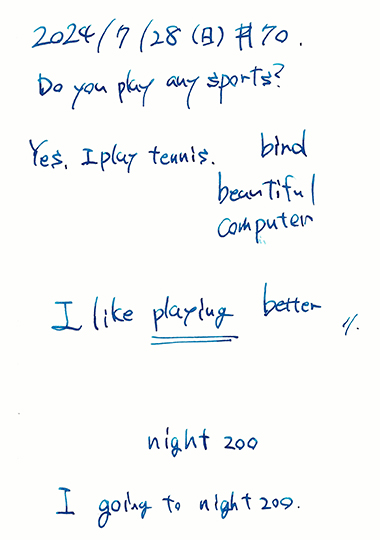 2024/7/28(日) #70.
Do you play any sports?
Yes, I play tennis.
bird
beautiful
computer
I like playing better
night zoo
I going to night zoo.